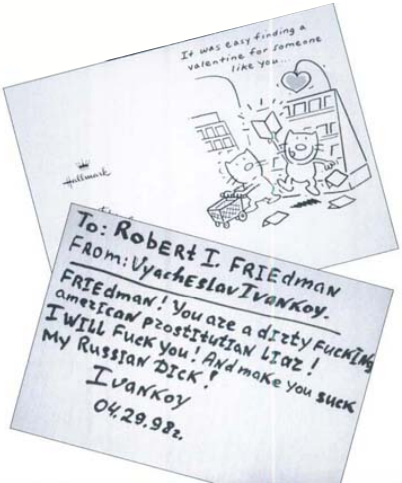 It was easy finding a
valentine for someone
like you...
Hallmark
To: RobERt I. FRIEdmAN
FROm: VyachEslav Ivankov.
FRIEdmAN! You are a dirty FuckINg
amERICAN PROStitutIAN LIAR!
I WILL Fuck you! And make you suck
My Russian DICK!
Ivankov
04.29.98г.